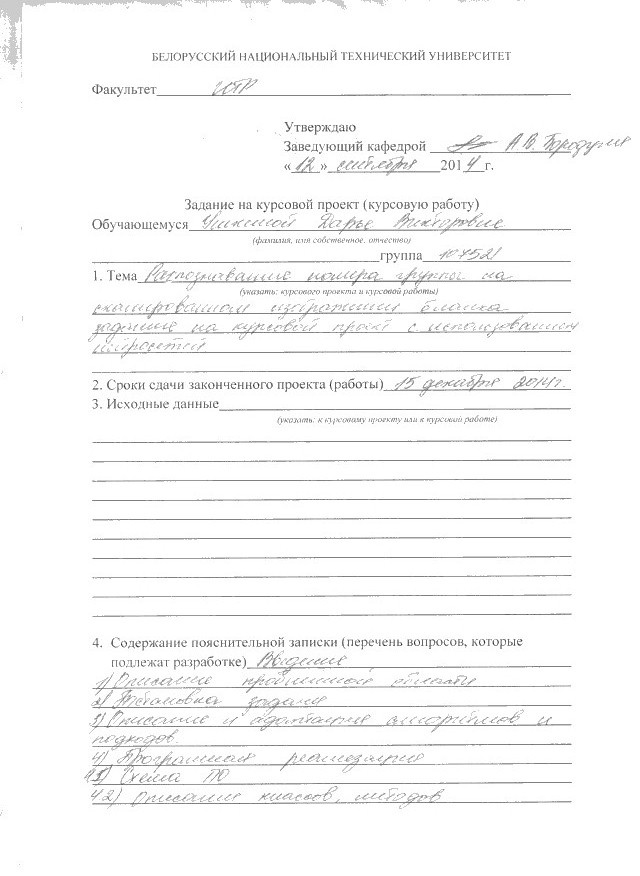 БЕЛОРУССКИЙ НАЦИОНАЛЬНЫЙ ТЕХНИЧЕСКИЙ УНИВЕРСИТЕТ
Факультет
Утверждаю
Заведующий кафедрой А.В. Бородуля
«12» сентября 2014 г.
Задание на курсовой проект (курсовую работу)
Обучающемуся Дарье Викторовне
(фамилия, имя собственное, отчество)
группа 107521
1. Тема Распознавание номера группы на
(указать: курсового проекта и курсовой работы)
сканированном изображении бланка
задание на курсовой проект с использованием
нейросетей
2. Сроки сдачи законченного проекта (работы) 15 декабря 2014г.
3. Исходные данные
(указать: к курсовому проекту или к курсовой работе)
4. Содержание пояснительной записки (перечень вопросов, которые
подлежат разработке) Введение
1) Описание проблемной области
2) Постановка задачи
3) Описание и адаптация алгоритмов и
подходов.
4) Программная реализация
4.1) Схема ПО
4.2) Описание классов, методов